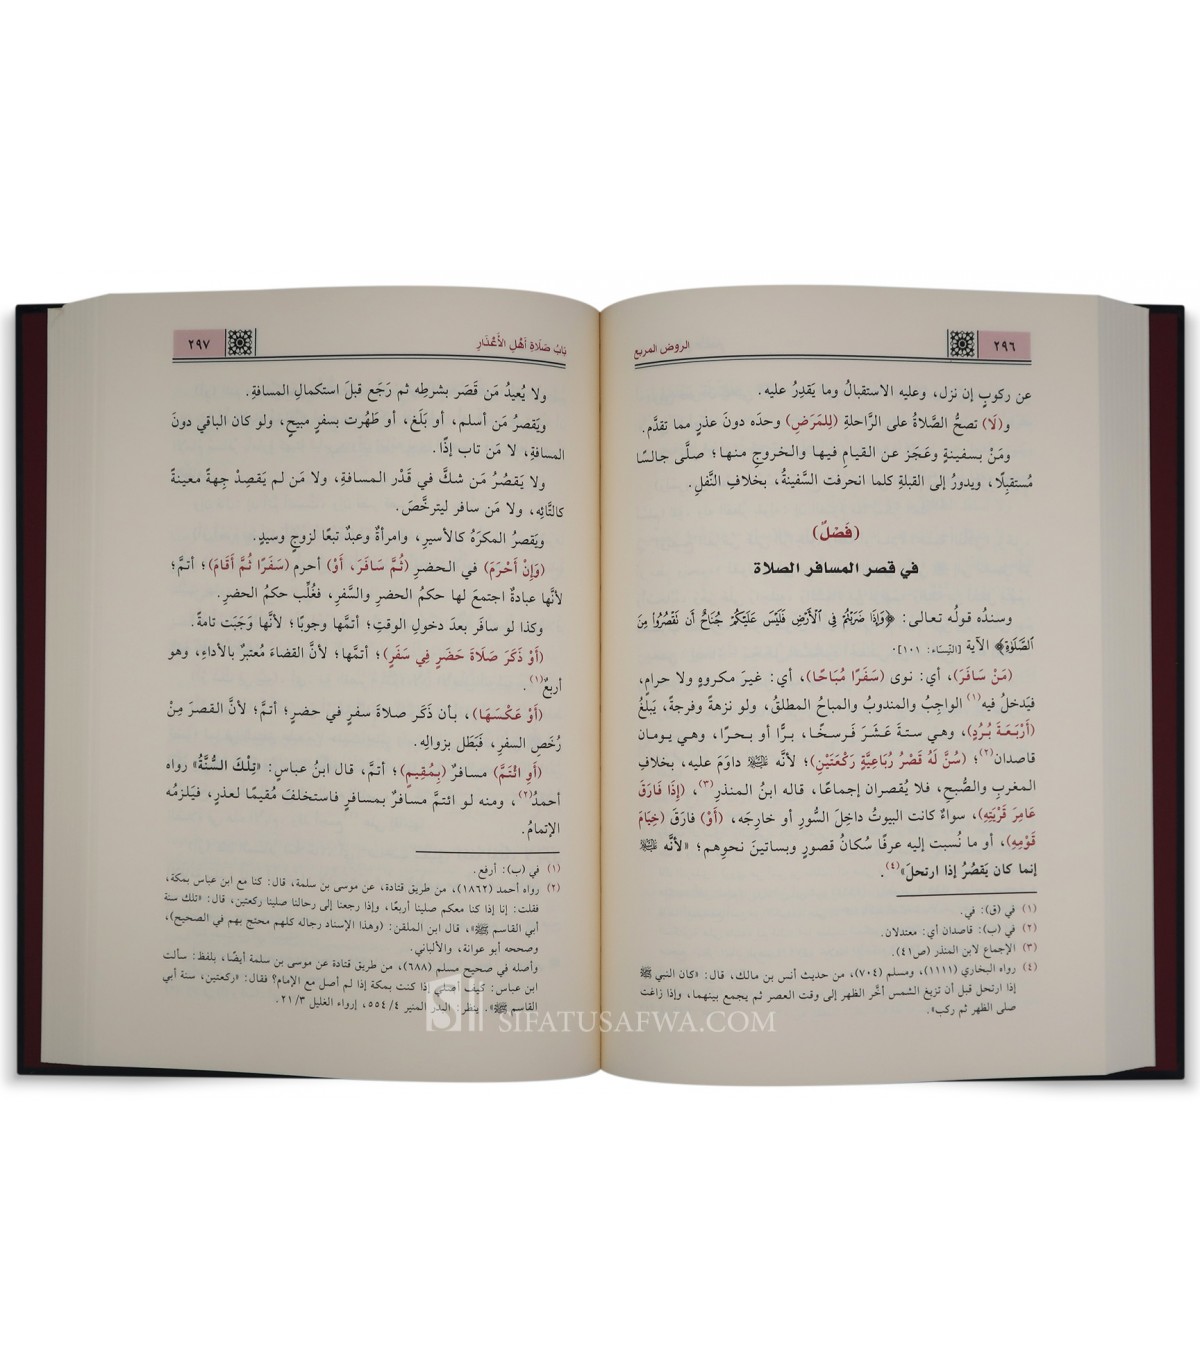 ٢٩٦
الروض المربع
عن ركوبٍ إن نزل، وعليه الاستقبالُ وما يَقدِرُ عليه.
و(لَا) تصحُّ الصَّلاةُ على الرَّاحلةِ (لِلمَرَضِ) وحدَه دونَ عذرٍ مما تقدَّم.
ومَنْ بسفينةٍ وعَجَز عن القيامِ فيها والخروجِ منها؛ صلَّى جالسًا
مُستقبِلًا، ويدورُ إلى القبلةِ كلما انحرفت السَّفينةُ، بخلافِ النَّفلِ.
(فَصْلٌ)
في قصر المسافر الصلاة
وسندُه قولُه تعالى: ﴿وَإِذَا ضَرَبْتُمْ فِي ٱلْأَرْضِ فَلَيْسَ عَلَيْكُمْ جُنَاحٌ أَن تَقْصُرُوا۟ مِنَ
ٱلصَّلَوٰةِ﴾ الآية [النِّسَاء: ١٠١].
(مَنْ سَافَرَ)، أي: نوى (سَفَرًا مُبَاحًا)، أي: غيرَ مكروهٍ ولا حرامٍ،
فيَدخلُ فيه(١) الواجِبُ والمندوبُ والمباحُ المطلقُ، ولو نزهةً وفرجةً، يَبلغُ
(أَرْبَعَةَ بُرُدٍ)، وهي ستةَ عَشَرَ فَرسخًا، برًّا أو بحرًا، وهي يومان
قاصدان(٢)؛ (سُنَّ لَهُ قَصْرُ رُبَاعِيَّةٍ رَكْعَتَيْنِ)؛ لأنَّه ﷺ داوَمَ عليه، بخلافِ
المغربِ والصُّبحِ، فلا يُقصران إجماعًا، قاله ابنُ المنذرِ(٣)، (إِذَا فَارَقَ
عَامِرَ قَرْيَتِهِ)، سواءٌ كانت البيوتُ داخِلَ السُّورِ أو خارِجَه، (أَوْ) فارَقَ (خِيَامَ
قَوْمِهِ)، أو ما نُسبت إليه عرفًا سُكانُ قصورٍ وبساتينَ نحوِهم؛ «لأنَّه ﷺ
إنما كان يَقصُرُ إذا ارتحلَ»(٤).
(١) في (ق): في.
(٢) في (ب): قاصدان أي: معتدلان.
(٣) الإجماع لابن المنذر (ص٤١).
(٤) رواه البخاري (١١١١)، ومسلم (٧٠٤)، من حديث أنس بن مالك، قال: «كان النبي ﷺ
إذا ارتحل قبل أن تزيغ الشمس أخَّر الظهر إلى وقت العصر ثم يجمع بينهما، وإذا زاغت
صلى الظهر ثم ركب».
بَابُ صَلَاةِ أَهْلِ الأَعْذَارِ
٢٩٧
ولا يُعيدُ مَن قَصَر بشرطِه ثم رَجَع قبلَ استكمالِ المسافةِ.
ويَقصرُ مَن أسلم، أو بَلَغ، أو طَهُرت بسفرٍ مبيحٍ، ولو كان الباقي دونَ
المسافةِ، لا مَن تاب إذًا.
ولا يَقصُرُ مَن شكَّ في قَدْر المسافةِ، ولا مَن لم يَقصِدْ جِهةً معينةً
كالتَّائِه، ولا مَن سافر ليترخَّصَ.
ويَقصرُ المكرَهُ كالأسيرِ، وامرأةٌ وعبدٌ تبعًا لزوجٍ وسيدٍ.
(وَإِنْ أَحْرَمَ) في الحضرِ (ثُمَّ سَافَرَ، أَوْ) أحرم (سَفَرًا ثُمَّ أَقَامَ)؛ أتمَّ؛
لأنَّها عبادةٌ اجتمعَ لها حكمُ الحضرِ والسَّفرِ، فغُلِّب حكمُ الحضرِ.
وكذا لو سافَر بعدَ دخولِ الوقتِ؛ أتمَّها وجوبًا؛ لأنَّها وَجَبَت تامةً.
(أَوْ ذَكَرَ صَلَاةَ حَضَرٍ فِي سَفَرٍ)؛ أتمَّها؛ لأنَّ القضاءَ مُعتبرٌ بالأداءِ، وهو
أربعٌ(١).
(أَوْ عَكْسَهَا)، بأن ذَكَر صلاةَ سفرٍ في حضرٍ؛ أتمَّ؛ لأنَّ القصرَ مِنْ
رُخَصِ السفرِ، فبَطَل بزوالِه.
(أَوِ ائْتَمَّ) مسافرٌ (بِمُقِيمٍ)؛ أتمَّ، قال ابنُ عباسٍ: «تِلْكَ السُّنَّةُ» رواه
أحمدُ(٢)، ومنه لو ائتمَّ مسافرٌ بمسافرٍ فاستخلفَ مُقيمًا لعذرٍ، فيَلزمُه
الإتمامُ.
(١) في (ب): أرفع.
(٢) رواه أحمد (١٨٦٢)، من طريق قتادة، عن موسى بن سلمة، قال: كنا مع ابن عباس بمكة،
فقلت: إنا إذا كنا معكم صلينا أربعًا، وإذا رجعنا إلى رحالنا صلينا ركعتين، قال: «تلك سنة
أبي القاسم ﷺ»، قال ابن الملقن: (وهذا الإسناد رجاله كلهم محتج بهم في الصحيح)،
وصححه أبو عوانة، والألباني.
وأصله في صحيح مسلم (٦٨٨)، من طريق قتادة عن موسى بن سلمة أيضًا، بلفظ: سألت
ابن عباس: كيف أصلي إذا كنت بمكة إذا لم أصل مع الإمام؟ فقال: «ركعتين، سنة أبي
القاسم ﷺ». ينظر: البدر المنير ٤/ ٥٥٤، إرواء الغليل ٣/ ٢١.
SIFATUSAFWA.COM